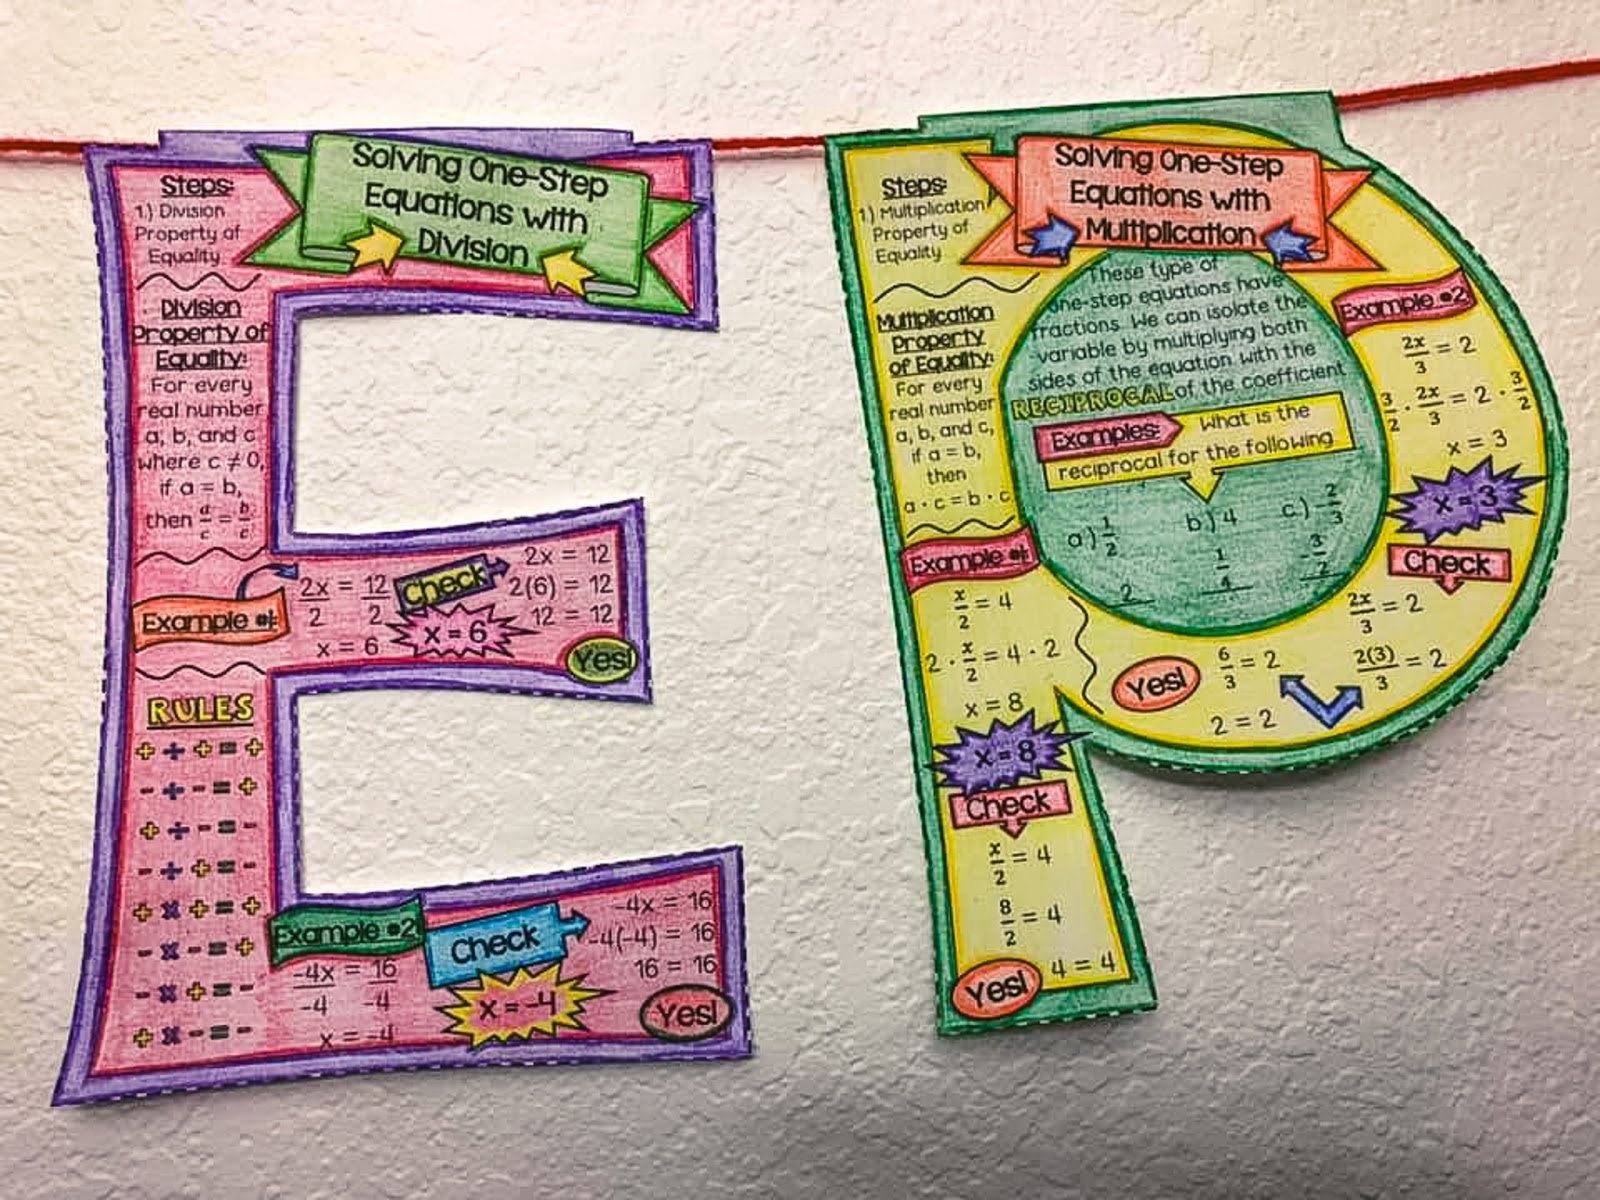 Solving One-Step
Equations with
Division
Steps:
1.) Division
Property of
Equality
Division
Property of
Equality:
For every
real number
a, b, and c
where c ≠ 0,
if a = b,
then a/c = b/c
Example #1:
2x/2 = 12/2
x = 6
Check
x = 6
2x = 12
2(6) = 12
12 = 12
Yes!
RULES
+ ÷ + = +
- ÷ - = +
+ ÷ - = -
- ÷ + = -
+ x + = +
- x - = +
- x + = -
+ x - = -
Example #2
-4x/-4 = 16/-4
x = -4
Check
x = -4
-4x = 16
-4(-4) = 16
16 = 16
Yes!
Solving One-Step
Equations with
Multiplication
Steps:
1.) Multiplication
Property of
Equality
Multiplication
Property
of Equality:
For every
real number
a, b, and c,
if a = b,
then
a · c = b · c
Example #1:
x/2 = 4
2 · x/2 = 4 · 2
x = 8
x = 8
Check
x/2 = 4
8/2 = 4
4 = 4
Yes!
These type of
one-step equations have
fractions. We can isolate the
variable by multiplying both
sides of the equation with the
RECIPROCAL of the coefficient
Examples: What is the
reciprocal for the following
a) 1/2 b) 4 c) 2/3
2 1/4 3/2
Example #2
2x/3 = 2
3/2 · 2x/3 = 2 · 3/2
x = 3
x = 3
Check
2x/3 = 2
2(3)/3 = 2
6/3 = 2
2 = 2
Yes!